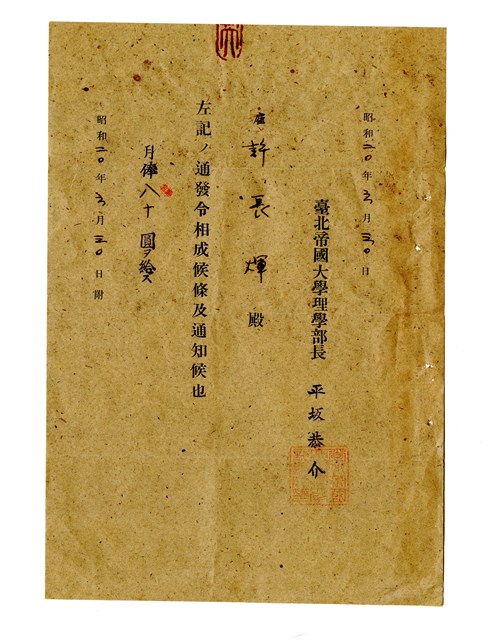 昭和二〇年三月三〇日
臺北帝國大學理學部長 平坂恭介
許長輝殿
左記ノ通發令相成候條及通知候也
月俸八十圓ヲ給ス
昭和二〇年三月三〇日附